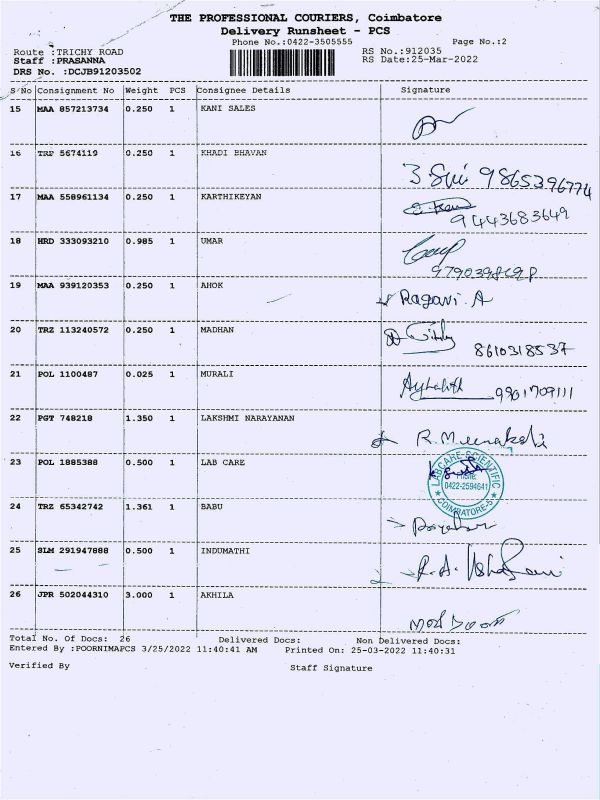 THE PROFESSIONAL COURIERS, Coimbatore
Delivery Runsheet - PCS
Phone No.:0422-3505555 Page No.:2
Route :TRICHY ROAD RS No.:912035
Staff :PRASANNA RS Date:25-Mar-2022
DRS No. :DCJB91203502
S/No Consignment No Weight PCS Consignee Details Signature
15 MAA 857213734 0.250 1 KANI SALES
16 TRP 5674119 0.250 1 KHADI BHAVAN
9865396774
17 MAA 558961134 0.250 1 KARTHIKEYAN
9443683649
18 HRD 333093210 0.985 1 UMAR
19 MAA 939120353 0.250 1 AHOK
Ragavi.A
20 TRZ 113240572 0.250 1 MADHAN
8610318537
21 POL 1100487 0.025 1 MURALI
9901709111
22 PGT 748218 1.350 1 LAKSHMI NARAYANAN
R.Meenakshi
23 POL 1885388 0.500 1 LAB CARE
LABCARE SCIENTIFIC
0422-2594641
COIMBATORE-5
24 TRZ 65342742 1.361 1 BABU
25 SLM 291947888 0.500 1 INDUMATHI
26 JPR 502044310 3.000 1 AKHILA
Total No. Of Docs: 26 Delivered Docs: Non Delivered Docs:
Entered By :POORNIMAPCS 3/25/2022 11:40:41 AM Printed On: 25-03-2022 11:40:31
Verified By Staff Signature